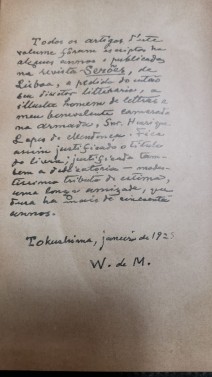 Todos os artigos d'este
volume foram escriptos ha
alguns annos e publicados
na revista Serões, de
Lisboa, a pedido do então
seu director litterario, o
illustre homem de lettras e
meu benevolente camarada
na armada, Snr. Henrique
Lopes de Mendonça. Fica
assim justificado o titulo
do livro; justificada tam-
bem a dedicatoria — modes-
tissimo tributo de estima,
uma longa amizade, que
dura ha mais de cincoenta
annos.
Tokushima, janeiro de 192
W. de M.